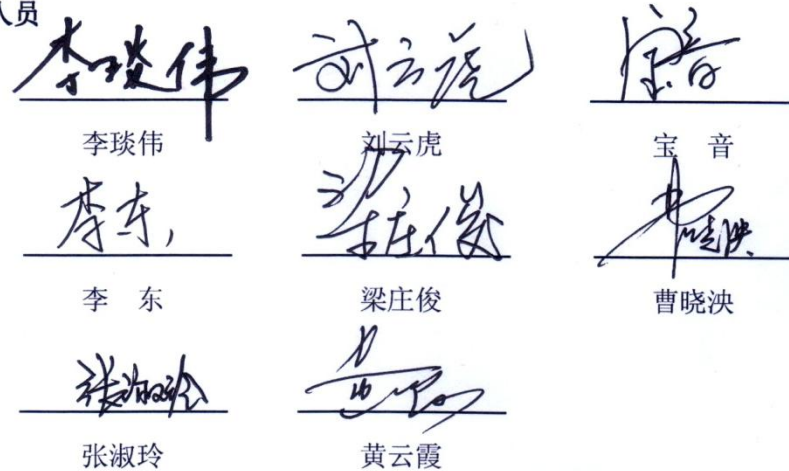 人员
李琰伟 刘云虎 宝音
李琰伟 刘云虎 宝 音
李东 梁庄俊 曹晓泱
李 东 梁庄俊 曹晓泱
张淑玲 黄云霞
张淑玲 黄云霞